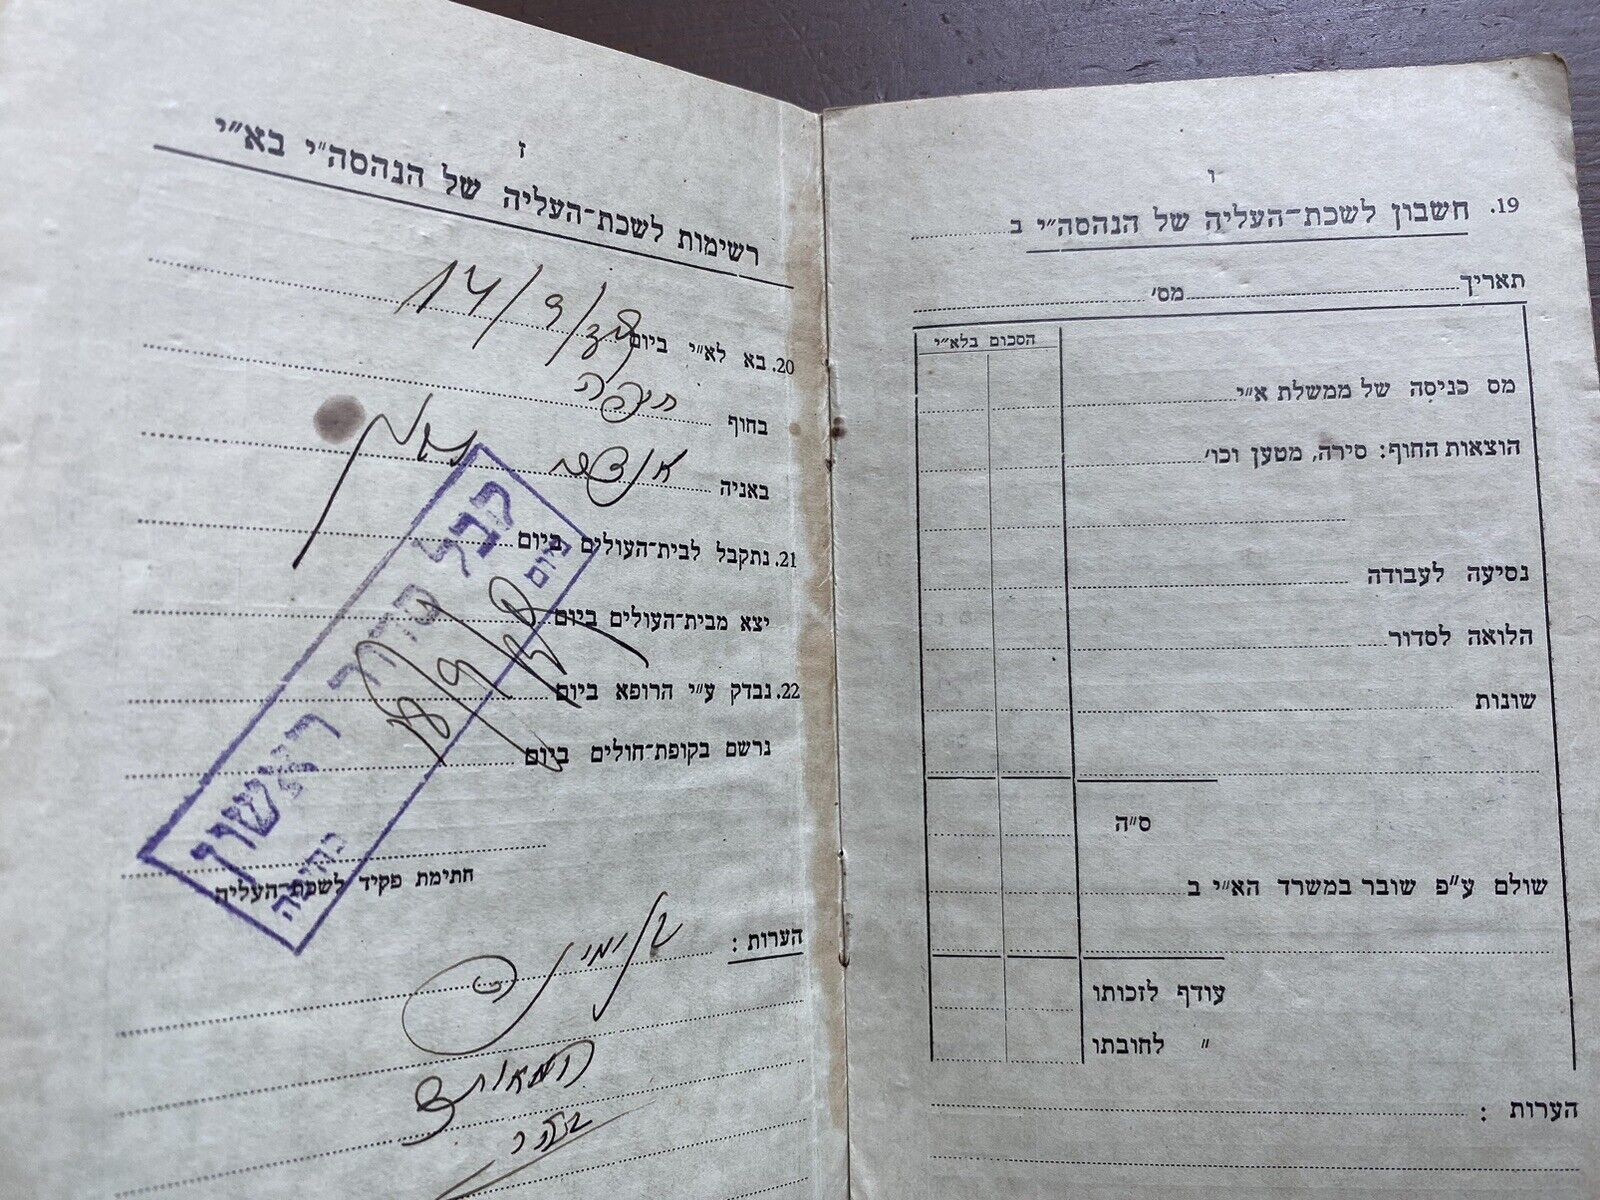 ו
19. חשבון לשכת-העליה של הנהסה"י ב
תאריך מס'
הסכום בלא"י
מס כניסה של ממשלת א"י
הוצאות החוף: סירה, מטען וכו'
נסיעה לעבודה
הלואה לסדור
שונות
ס"ה
שולם ע"פ שובר במשרד הא"י ב
עודף לזכותו
" לחובתו
הערות :
ז
רשימות לשכת-העליה של הנהסה"י בא"י
20. בא לא"י ביום 14/9/
בחוף חיפה
באניה
21. נתקבל לבית-העולים ביום
יצא מבית-העולים ביום
22. נבדק ע"י הרופא ביום
נרשם בקופת-חולים ביום
קבל סדור ראשון
ביום
בחיפה
חתימת פקיד לשכת-העליה
הערות :